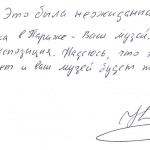 Это была неожиданна
ка в Париже - Ваш музей.
спозиция. Надеюсь, что э
ет и ваш музей будет п